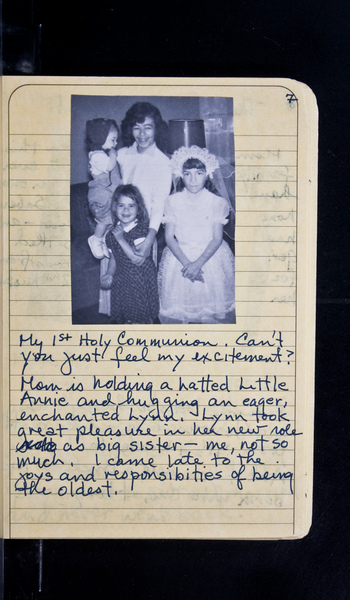 7
My 1st Holy Communion. Can't
you just feel my excitement?
Mom is holding a hatted Little
Annie and hugging an eager,
enchanted Lynn. Lynn took
great pleasure in her new role
as big sister — me, not so
much. I came late to the
joys and responsibities of being
the oldest.